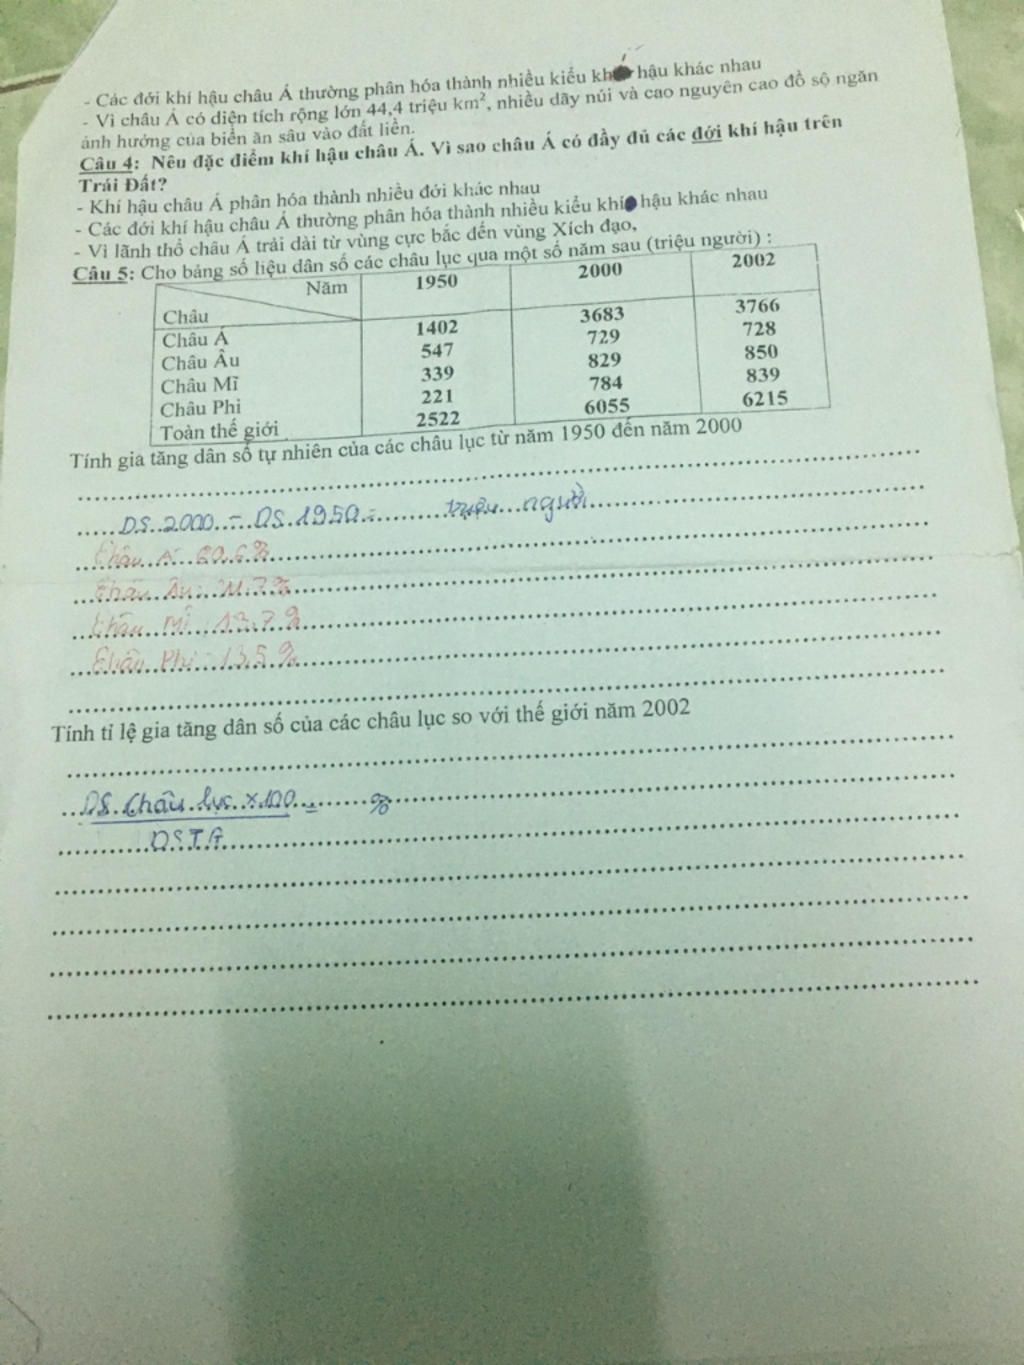 - Các đới khí hậu châu Á thường phân hóa thành nhiều kiểu hậu khác nhau
- Vì châu Á có diện tích rộng lớn 44,4 triệu km², nhiều dãy núi và cao nguyên cao đồ sộ ngăn
ảnh hưởng của biển ăn sâu vào đất liền.
Câu 4: Nêu đặc điểm khí hậu châu Á. Vì sao châu Á có đầy đủ các đới khí hậu trên
Trái Đất?
- Khí hậu châu Á phân hóa thành nhiều đới khác nhau
- Các đới khí hậu châu Á thường phân hóa thành nhiều kiểu khí hậu khác nhau
- Vì lãnh thổ châu Á trải dài từ vùng cực bắc đến vùng Xích đạo,
Câu 5: Cho bảng số liệu dân số các châu lục qua một số năm sau (triệu người) :
Năm 1950 2000 2002
Châu
Châu Á 1402 3683 3766
Châu Âu 547 729 728
Châu Mĩ 339 829 850
Châu Phi 221 784 839
Toàn thế giới 2522 6055 6215
Tính gia tăng dân số tự nhiên của các châu lục từ năm 1950 đến năm 2000
DS 2000 - DS 1950 = triệu người
Châu Á: 60,6%
Châu Âu: 11,7%
Châu Mĩ: 13,7%
Châu Phi: 13,5%
Tính tỉ lệ gia tăng dân số của các châu lục so với thế giới năm 2002
DS Châu lục x 100 = %
DSTG